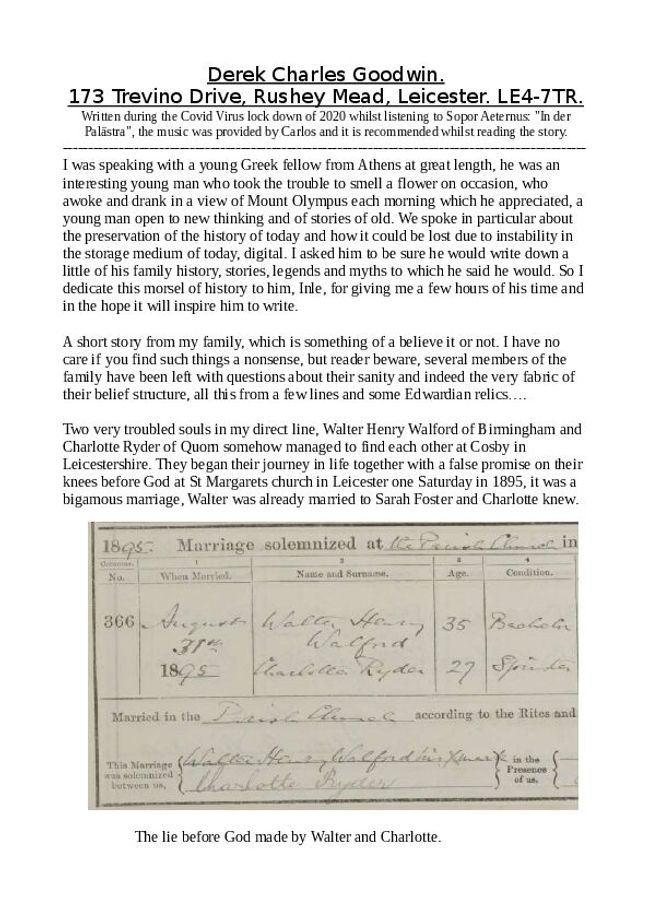 Derek Charles Goodwin.
173 Trevino Drive, Rushey Mead, Leicester. LE4-7TR.
Written during the Covid Virus lock down of 2020 whilst listening to Sopor Aeternus: "In der
Palästra", the music was provided by Carlos and it is recommended whilst reading the story.
I was speaking with a young Greek fellow from Athens at great length, he was an
interesting young man who took the trouble to smell a flower on occasion, who
awoke and drank in a view of Mount Olympus each morning which he appreciated, a
young man open to new thinking and of stories of old. We spoke in particular about
the preservation of the history of today and how it could be lost due to instability in
the storage medium of today, digital. I asked him to be sure he would write down a
little of his family history, stories, legends and myths to which he said he would. So I
dedicate this morsel of history to him, Inle, for giving me a few hours of his time and
in the hope it will inspire him to write.
A short story from my family, which is something of a believe it or not. I have no
care if you find such things a nonsense, but reader beware, several members of the
family have been left with questions about their sanity and indeed the very fabric of
their belief structure, all this from a few lines and some Edwardian relics….
Two very troubled souls in my direct line, Walter Henry Walford of Birmingham and
Charlotte Ryder of Quorn somehow managed to find each other at Cosby in
Leicestershire. They began their journey in life together with a false promise on their
knees before God at St Margarets church in Leicester one Saturday in 1895, it was a
bigamous marriage, Walter was already married to Sarah Foster and Charlotte knew.
1895. Marriage solemnized at the Parish Church in
Columns. 1 2 3 4
No. When Married. Name and Surname. Age. Condition.
366 August Walter Henry 35 Bachelor
31st Walford
1895 Charlotte Ryder 27 Spinster
Married in the Parish Church according to the Rites and
This Marriage was solemnized between us, Walter Henry Walford his X mark in the Presence of us,
Charlotte Ryder
The lie before God made by Walter and Charlotte.